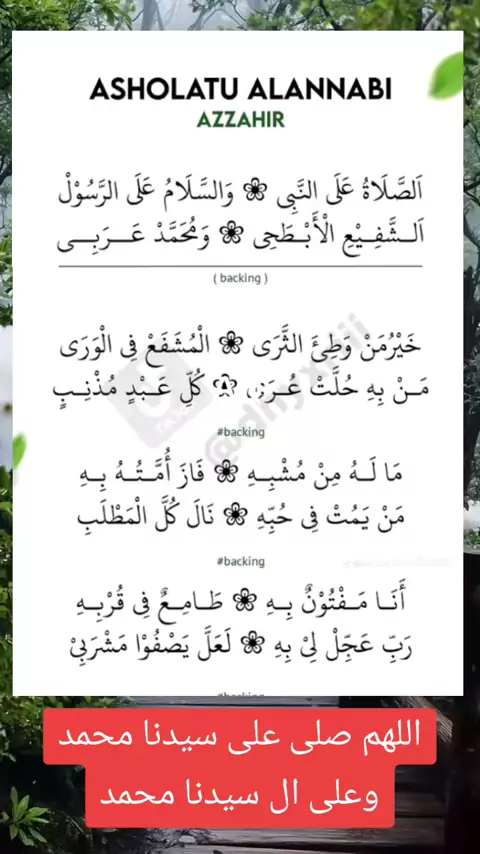 ASHOLATU ALANNABI
AZZAHIR
اَلصَّلَاةُ عَلَى النَّبِى ❀ وَالسَّلَامُ عَلَى الرَّسُوْلْ
اَلشَّفِيْعِ الْأَبْطَحِى ❀ وَمُحَمَّدْ عَرَبِى
( backing )
خَيْرُمَنْ وَطِئَ الثَّرَى ❀ الْمُشَفَعْ فِى الْوَرَى
مَنْ بِهِ حُلَّتْ ❀ كُلِّ عَبْدٍ مُذْنِبٍ
#backing
مَا لَهُ مِنْ مُشْبِهِ ❀ فَازَ أُمَّتُهُ بِهِ
مَنْ يَمُتْ فِى حُبِّهِ ❀ نَالَ كُلَّ الْمَطْلَبِ
#backing
أَنَا مَفْتُوْنٌ بِهِ ❀ طَامِعٌ فِى قُرْبِهِ
رَبِّ عَجِّلْ لِىْ بِهِ ❀ لَعَلَّ يَصْفُوْا مَشْرَبِىْ
#backing
اللهم صلى على سيدنا محمد
وعلى ال سيدنا محمد